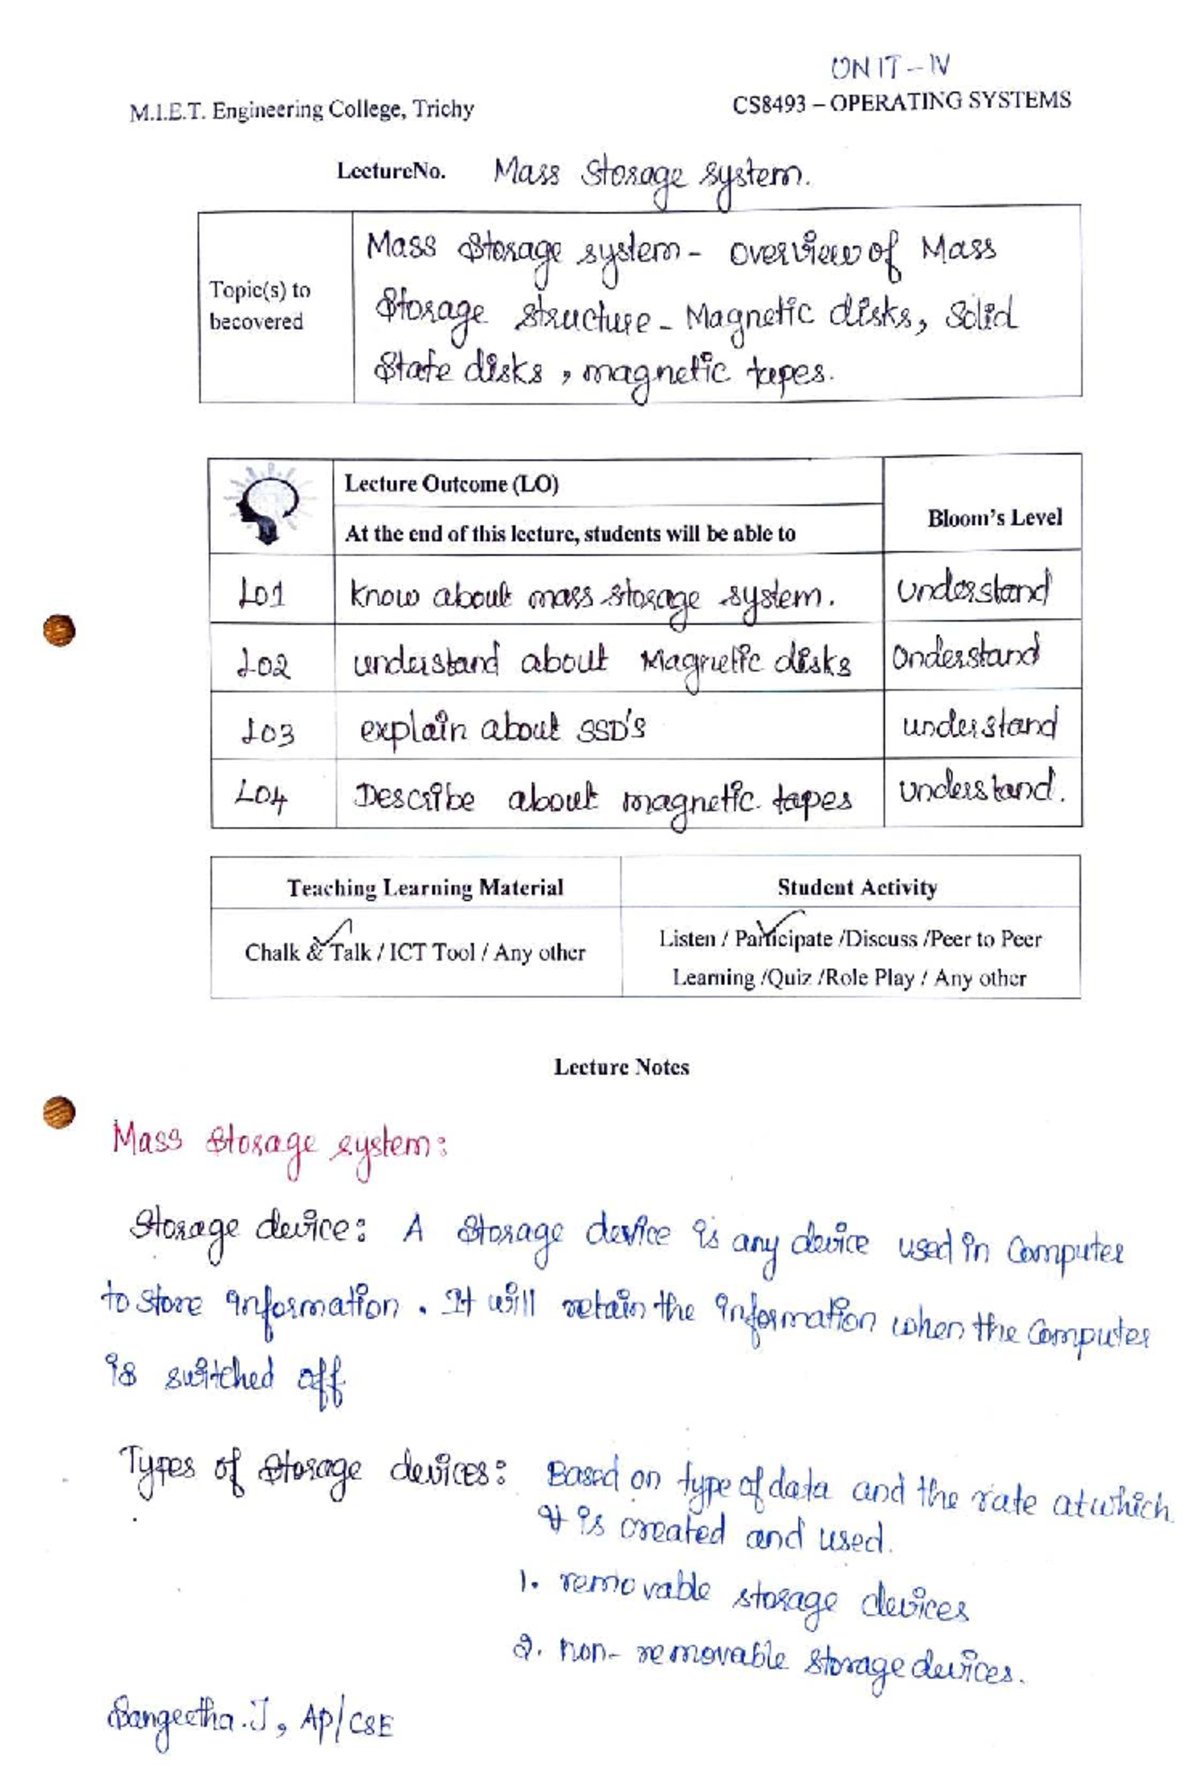 UNIT - IV
M.I.E.T. Engineering College, Trichy
CS8493 – OPERATING SYSTEMS
LectureNo. Mass Storage system.
Topic(s) to
becovered
Mass Storage system - overview of Mass
Storage structure - Magnetic disks, Solid
State disks, magnetic tapes.
Lecture Outcome (LO)
At the end of this lecture, students will be able to
Bloom's Level
LO1 know about mass storage system. understand
LO2 understand about Magnetic disks Understand
LO3 explain about SSD's understand
LO4 Describe about magnetic tapes understand.
Teaching Learning Material
Student Activity
Chalk & Talk / ICT Tool / Any other
Listen / Participate /Discuss /Peer to Peer
Learning /Quiz /Role Play / Any other
Lecture Notes
Mass Storage system:
Storage device: A Storage device is any device used in Computer
to store information. It will retain the information when the Computer
is switched off
Types of Storage devices: Based on type of data and the rate at which
it is created and used.
1. removable storage devices
2. non- removable storage devices.
Sangeetha.J, AP/CSE